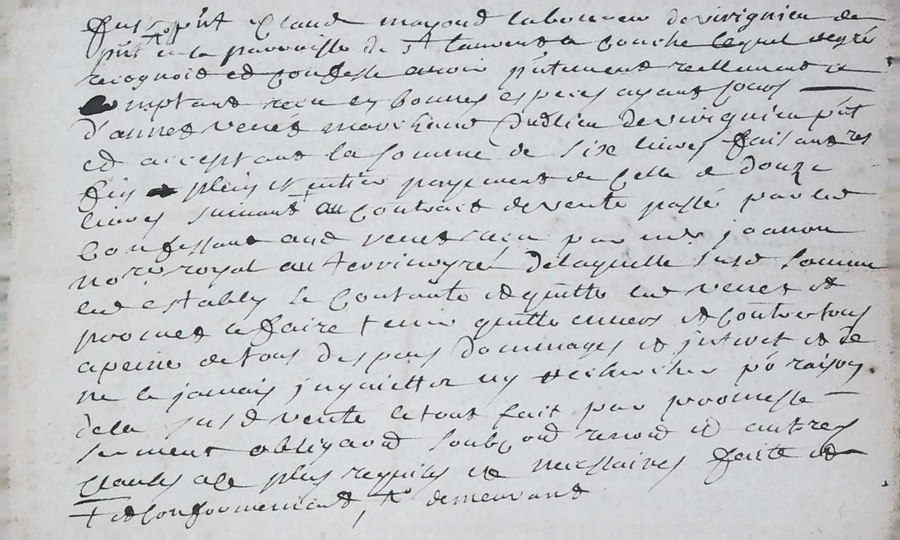 fust p^nt Claud mayoud laboureur de vivignieu de
p^nt en la parroisse de S^t laurent a Couche lequel de gré
recognoit et Confesse avoir p^ntement reellement et
Comptant receu en bonnes especes ayant Cours
d'annet venet marchand dudlieu de vivignieu p^nt
et acceptant la somme de six livres faisant res
du plein et entier payement de Celle de douze
livres suivant au Contrait de vente passé par led
Confessant aud venet receu par m^e joanon
no^re royal au terrinoyré de laquelle susd somme
led estably se Contante et quitte led venet et
promet le faire tenir quitte envers et Contre tous
a peine de tous despens dommages et jnterest et de
ne le jamais jnquietter ny rechercher p^r raison
de la susd vente le tout fait par promesse
serment obligaõn soubz^on renonõn et autres
Clauses a ce plus requises et necessaires faite et
+ et Conformement, demeurant